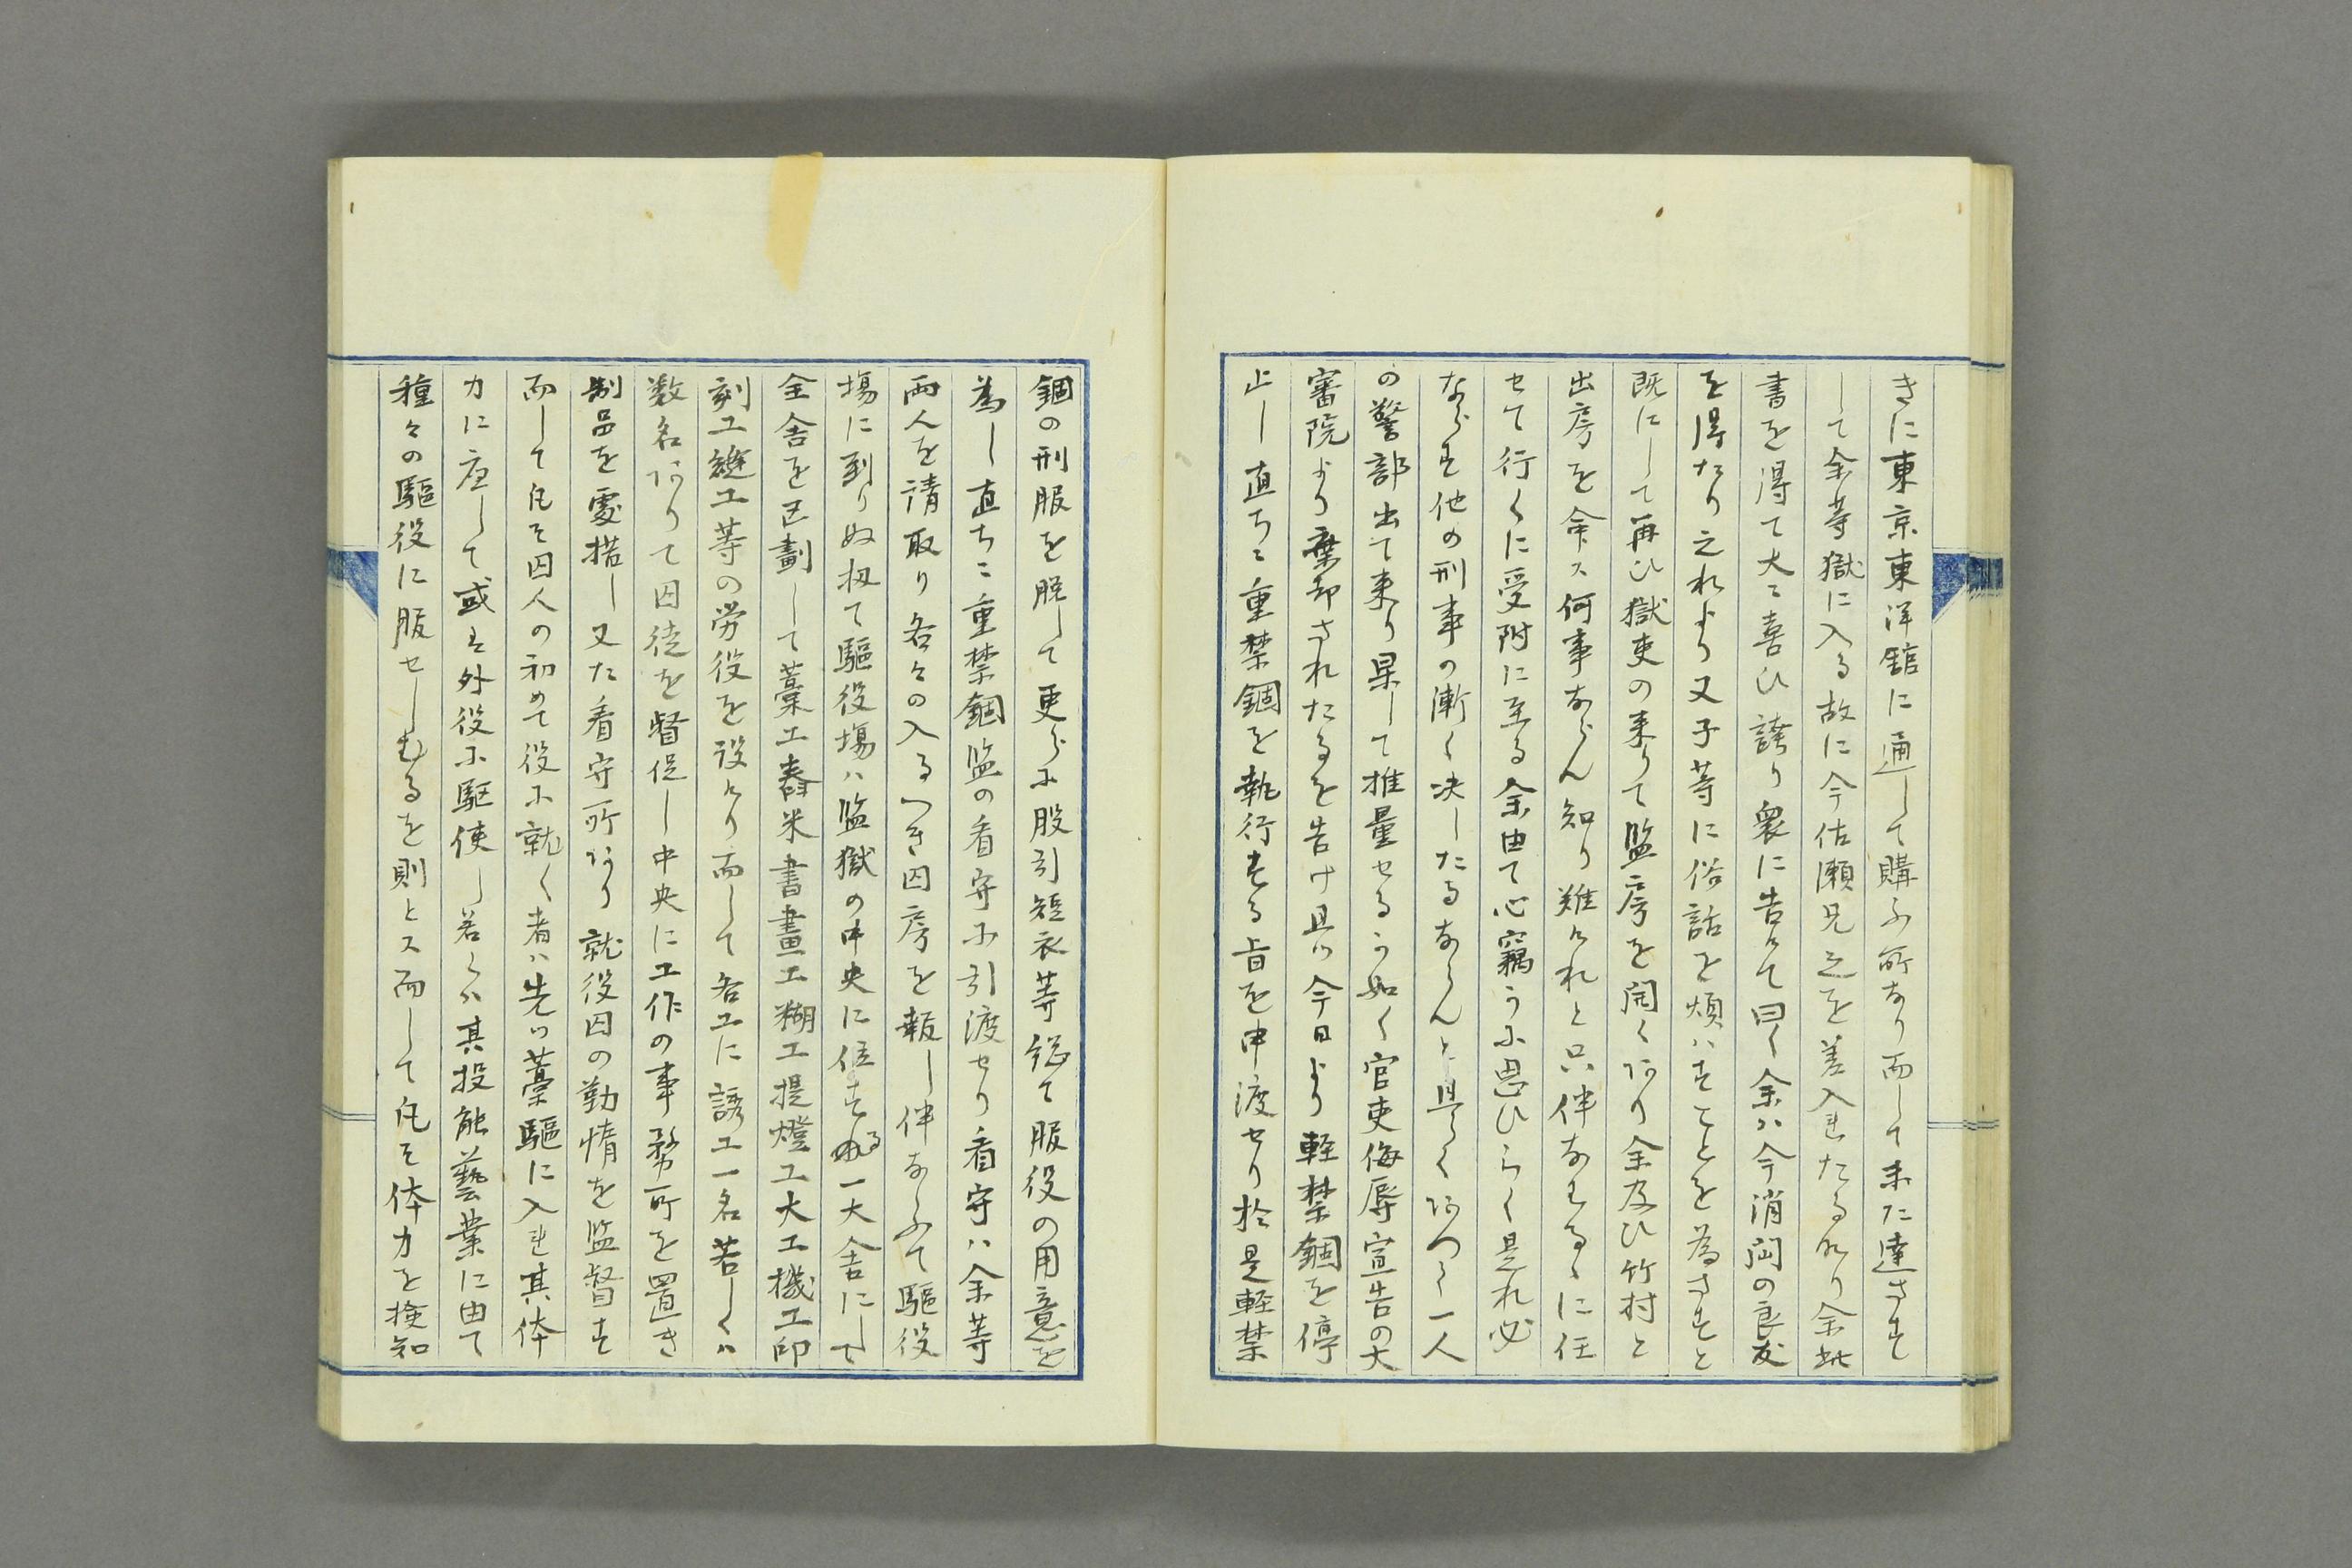 きに東京東洋舘に通して購ふ所なり而して未た達せすと
して余等獄に入る故に今佶瀬兄之を差入れたるなり余此
書を得て大ニ喜ひ誇り衆に告けて曰く余ハ今消悶の良友
を得たり之れより又子等に俗話を煩ハすことを為さすと
既にして再ひ獄吏の来りて監房を開くあり余及ひ竹村と
出房を命ス何事ならん知り難けれと只伴なはるゝに任
せて行くに受附に至る余由て心竊かに思ひらく是れ必
ならす他の刑事の漸く決したるならんと具さくあつく一人
の警部出て来り果して推量せるか如く官吏侮辱宣告の大
審院より棄却されたるを告け且ツ今日より軽禁錮を停
止し直ちニ重禁錮を執行する旨を申渡せり於是軽禁
錮の刑服を脱して更らに股引短衣等総て服役の用意を
為し直ちニ重禁錮監の看守に引渡せり看守ハ余等
両人を請取り各々の入るへき囚房を報し伴なふて駆役
場に到りぬ扨て駆役場ハ監獄の中央に位する一大舎にして
全舎を区劃して藁工舂米書畫工糊工提燈工大工機工印
刻工縫工等の労役を設けり而して各工に諺工一名若しくハ
数名ありて囚徒を督促し中央に工作の事務所を置き
制品を處措し又た看守所あり就役囚の勤惰を監督す
而して凡そ囚人の初めて役に就く者ハ先ツ藁駆に入れ其体
力に応して或は外役に駆使し若くハ其投能藝業に由て
種々の駆役に服せしむるを則とス而して凡そ体力を検知